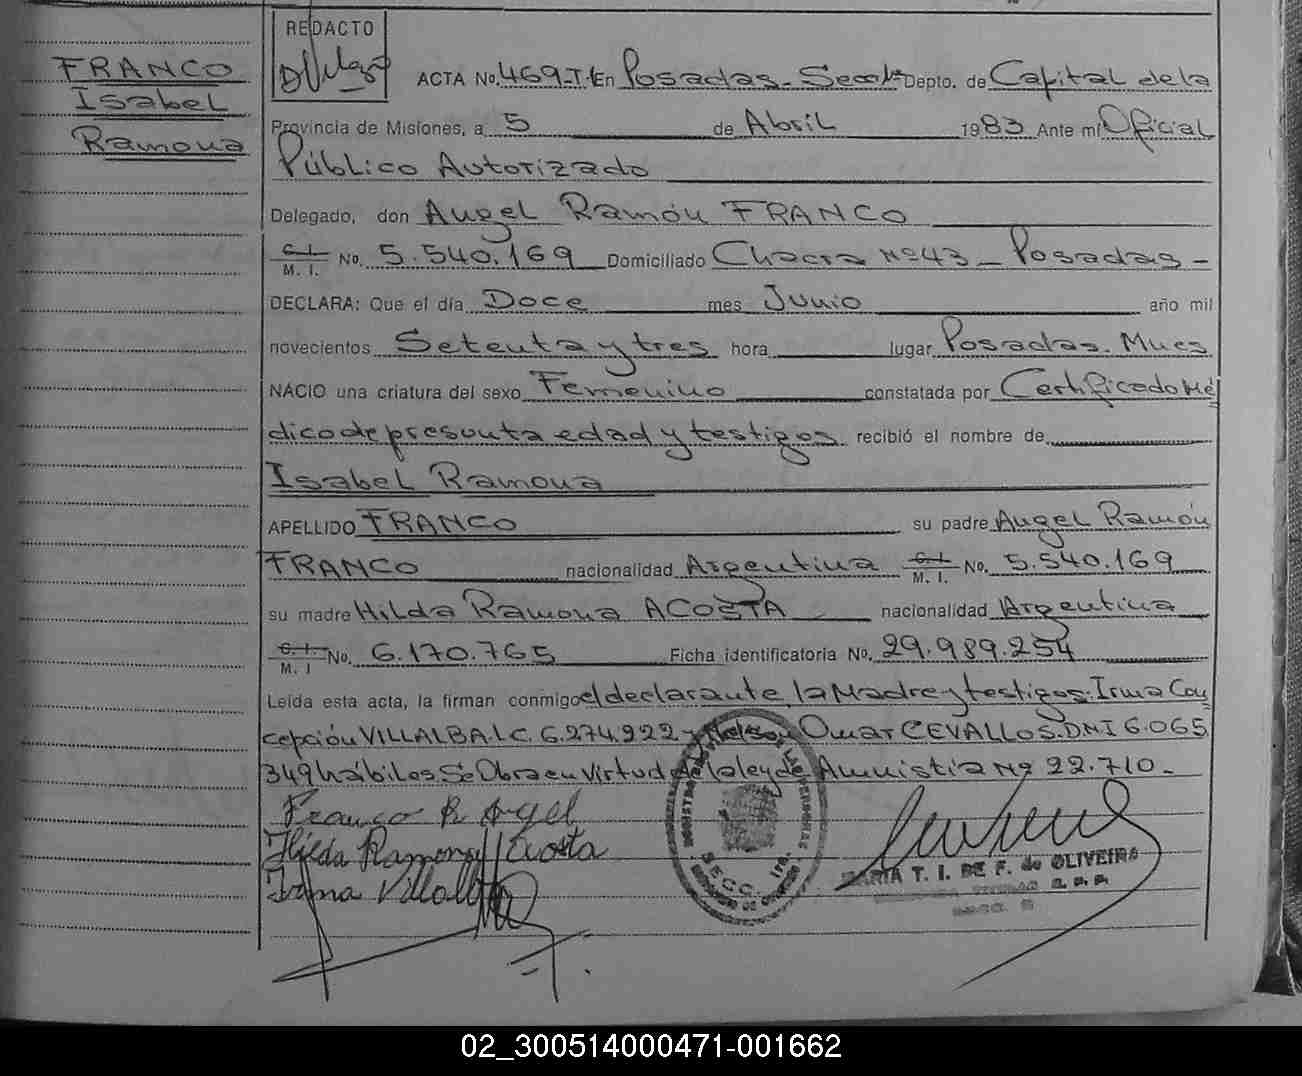 FRANCO
Isabel
Ramona
REDACTO
ACTA No. 469-T.I En Posadas- Secc. 1ª Depto. de Capital de la
Provincia de Misiones, a 5 de Abril 1983 Ante mí Oficial
Público Autorizado
Delegado, don Angel Ramón FRANCO
C. I.
M. I. No. 5.540.169 Domiciliado Chacra Nº 43 - Posadas -
DECLARA: Que el día Doce mes Junio año mil
novecientos Setenta y tres hora lugar Posadas. Mnes
NACIO una criatura del sexo Femenino constatada por Certificado Mé
dico de presunta edad y testigos recibió el nombre de
Isabel Ramona
APELLIDO FRANCO su padre Angel Ramón
FRANCO nacionalidad Argentina C. I.
M. I. No. 5.540.169
su madre Hilda Ramona ACOSTA nacionalidad Argentina
C. I.
M. I No. 6.170.765 Ficha identificatoria No. 29.989.254
Leída esta acta, la firman conmigo el declarante, la Madre y testigos: Irma Con
cepción VILLALBA. L C. 6.274.922 - y Omar CEVALLOS. DNI 6.065
349 hábiles. Se Obra en Virtud de la ley de Amnistia Nº 22.710 -
Franco R Angel
Hilda Ramona Acosta
Irma Villalba
REGISTRO PROVINCIAL DE LAS PERSONAS
SECC. 1ra.
MARIA T. I. DE F. de OLIVEIRA
02_300514000471-001662